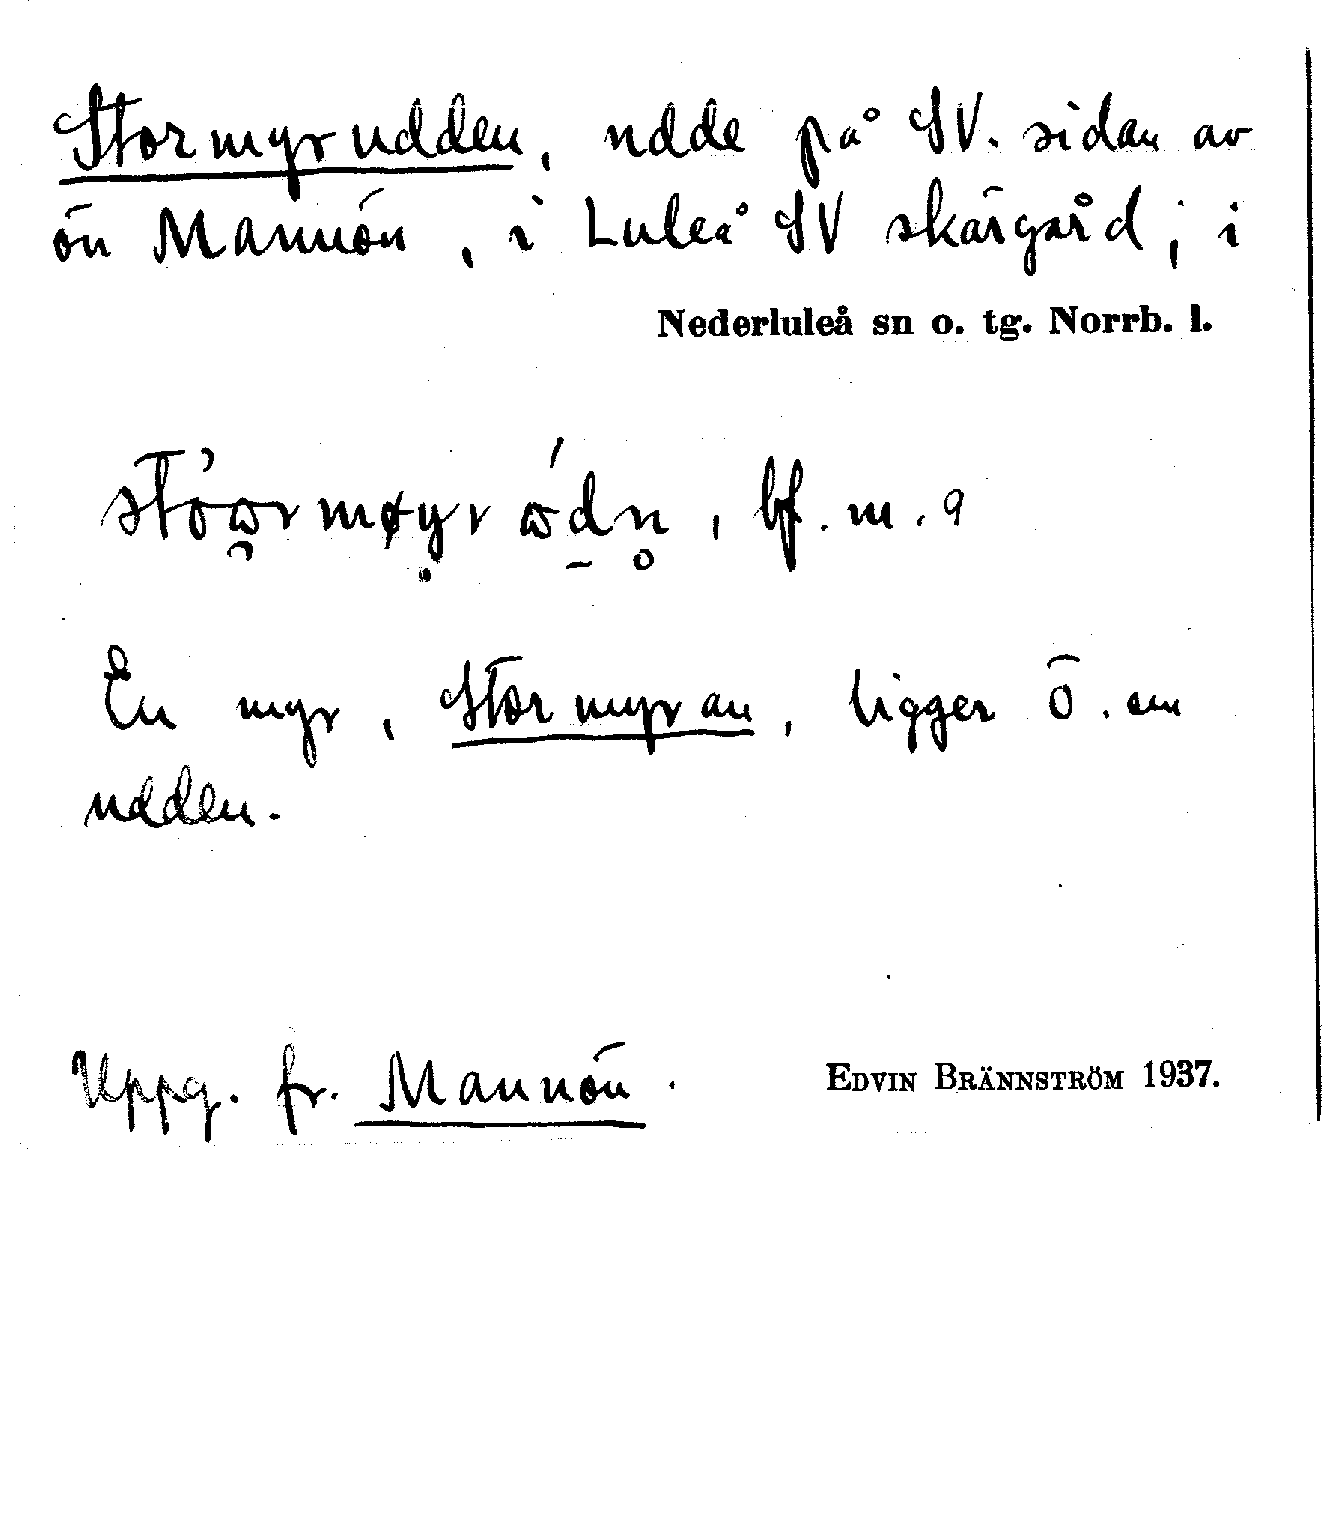 Stormyrudden, udde på SV. sidan av
ön Mannön, i Luleå SV skärgård, i
Nederluleå sn o. tg. Norrb. l.
bf. m. a
En myr, Stormyran, ligger Ö. om
udden.
Uppg. fr. Mannön.
EDVIN BRÄNNSTRÖM 1937.